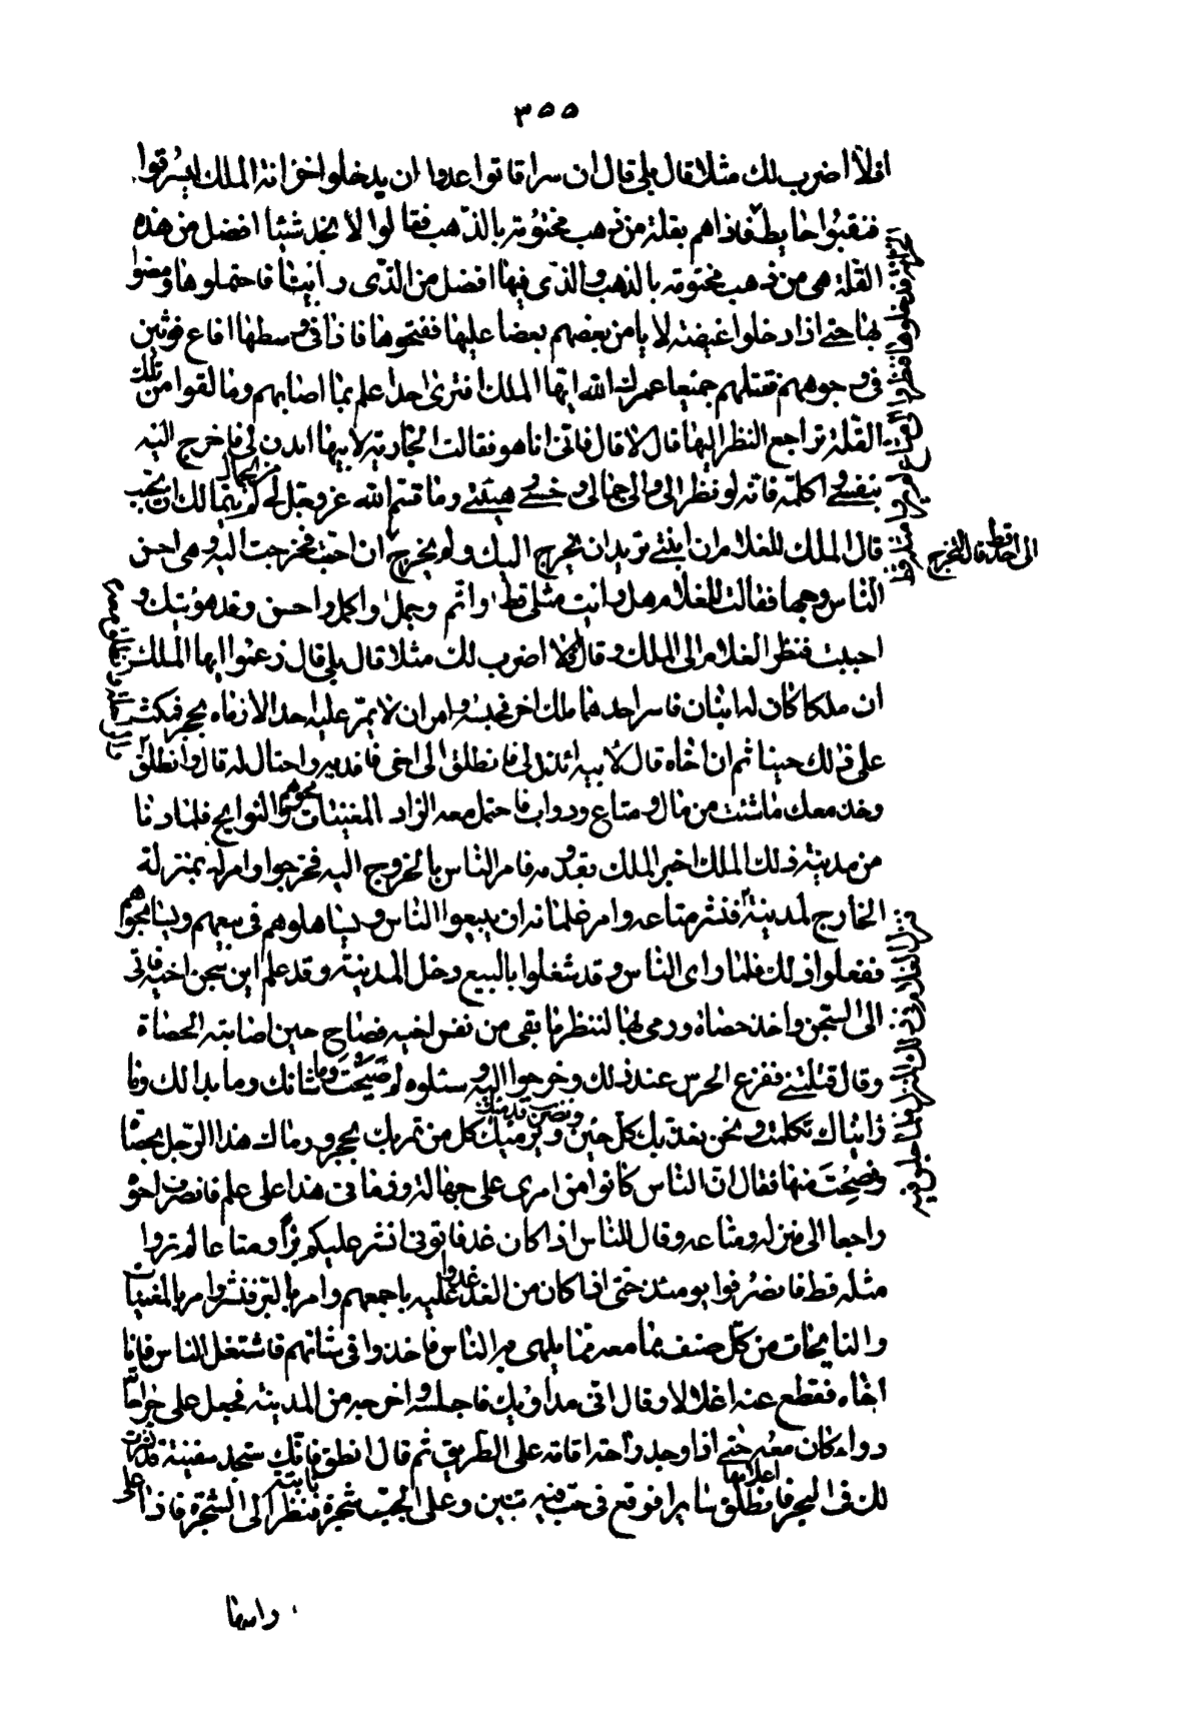 ٣٥٥
افلا اضرب لك مثلا قال بلى قال ان سراقا تواعدوا ان يدخلوا خزانة الملك ليسرقوا
فنقبوا حايط فاذاهم بقلة من ذهب مختومة بالذهب فقالوا لا نجد شيئا افضل من هذه
القلة هي من ذهب مختومة بالذهب والذي فيها افضل من الذي راينا فاحتملوها ومضوا
بها حتى اذا دخلوا غيضة لا يامن بعضهم بعضا عليها ففتحوها فاذا في وسطها افاع فوثبن
في وجوههم فقتلهم جميعا عمرك الله ايها الملك افترى احدا علم بما اصابهم وما لقوا من تلك
القلة يراجع النظر اليها قال لا قال فاني انا هو فقالت الجارية لابيها ائذن لي فاخرج اليه
بنفسي واكلمه فانه لو نظر الي والى جمالي وحسن هيئتي وما قسم الله عز وجل لي من الجمال لم يتمالك ان يجيب
قال الملك للغلام ان ابنتي تريد ان تخرج اليك ولم تخرج ان احب فخرجت اليه وهي احسن
الى احد قط قال لتخرج
الناس وجها فقالت للغلام هل رايت مثلي قط واتم واجمل واكمل واحسن وقد هويتك و
احببت فنظر الغلام الى الملك وقال افلا اضرب لك مثلا قال بلى قال زعموا ايها الملك
ان ملكا كان له ابنان فاسر احدهما ملك اخر فحبسه وامر ان لا يمر عليه احد الا رماه بحجر فمكث
على ذلك حينا ثم ان اخاه قال لابيه ائذن لي فانطلق الى اخي فافديه واحتال له قال وانطلق
وخذ معك ما شئت من مال ومتاع ودواب فاحتمل معه الزاد المغنيات والنوايح فلما دنا
من مدينة ذلك الملك اخبر الملك بقدومه فامر الناس بالخروج اليه فخرجوا وامر له بمنزلة
الخارج لمدينة فنشر متاعه وامر غلمانه ان يبيعوا الناس ويساهلوهم في بيعهم ويسامحوهم
ففعلوا ذلك فلما راى الناس وقد شغلوا بالبيع دخل المدينة وقد علم اين سجن اخيه فاتى
الى السجن واخذ حصاة ورمى بها لننظر ما بقي من نفس اخيه فصاح حين اصابته الحصاة
وقال قتلتني ففزع الحرس عند ذلك وخرجوا اليه وسئلوه لم صيحت وما شانك وما بدا لك وما
رايناك تكلمت ونحن نعذبك كل حين ويرميك كل من تمر بك بحجر ورماك هذا الرجل بحصاة
وصحت منها فقال ان الناس كانوا من امري على جهالة ورماني هذا على علم فانصرف اخوه
راجعا الى منزله ومتاعه وقال للناس اذا كان غد فاتوني انشر عليكم بزا ومتاعا لم تروا
مثله قط فانصرفوا يومئذ حتى اذا كان من الغد غدوا عليه باجمعهم وامر بالبز فنشر وامر بالمغنيات
والنايحات من كل صنف بما معه مما يلهي به الناس فاخذوا في شانهم فاشتغل الناس فاتى
اخاه فقطع عنه اغلاله وقال اني مداويك فاجلسه واخرجه من المدينة فجعل على جراحاته
دواء كان معه حتى اذا وجد راحة اقامه على الطريق ثم قال انطلق فانك ستجد سفينة قد سيرت
لك في البحر فانطلق سايرا فوقع في جب فيه تنين وعلى الجب شجرة نابتة فنظر الى الشجرة فاذا على
راسها